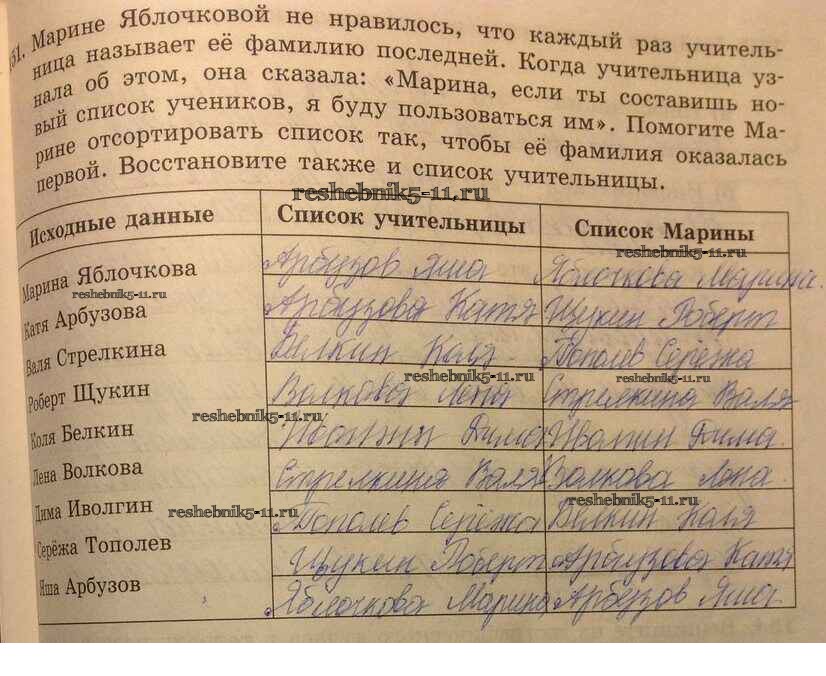 51. Марине Яблочковой не нравилось, что каждый раз учитель-
ница называет её фамилию последней. Когда учительница уз-
нала об этом, она сказала: «Марина, если ты составишь но-
вый список учеников, я буду пользоваться им». Помогите Ма-
рине отсортировать список так, чтобы её фамилия оказалась
первой. Восстановите также и список учительницы.
reshebnik5-11.ru
Исходные данные Список учительницы Список Марины
reshebnik5-11.ru
Марина Яблочкова Арбузов Яша Яблочкова Марина.
reshebnik5-11.ru
Катя Арбузова Арбузова Катя Щукин Роберт
Валя Стрелкина Белкин Коля Тополев Серёжа
reshebnik5-11.ru reshebnik5-11.ru
Роберт Щукин Волкова Лена Стрелкина Валя
reshebnik5-11.ru
Коля Белкин Иволгин Дима Иволгин Дима.
Лена Волкова Стрелкина Валя Волкова Лена.
reshebnik5-11.ru reshebnik5-11.ru
Дима Иволгин Тополев Серёжа Белкин Коля
Серёжа Тополев Щукин Роберт Арбузова Катя
Яша Арбузов Яблочкова Марина Арбузов Яша.